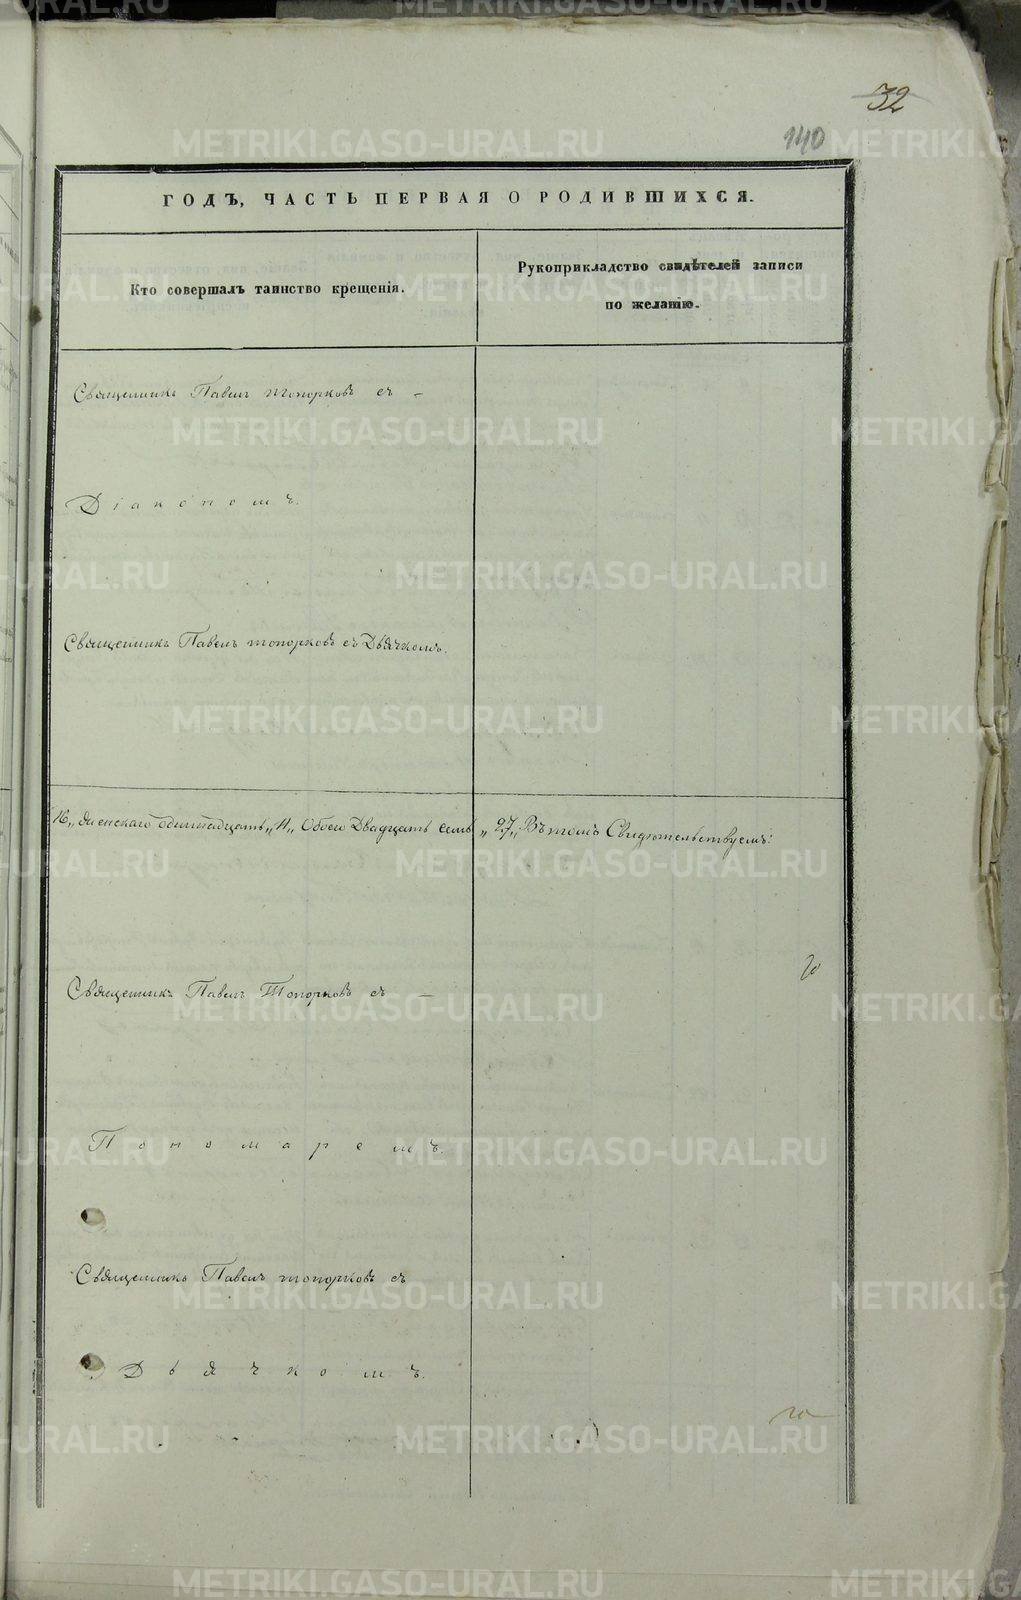 32
140
ГОДЪ, ЧАСТЬ ПЕРВАЯ О РОДИВШИХСЯ.
Кто совершалъ таинство крещенія.
Рукоприкладство свидѣтелей записи
по желанію.
Священникъ Павелъ Топорковъ съ —
Діакономъ.
Священникъ Павелъ Топорковъ съ Дьячкомъ.
16,, женскаго одиннадцать,, 11,, Обоего Двадцать семь ,, 27,, Въ томъ Свидѣтельствуемъ:
Священникъ Павелъ Топорковъ съ —
Пономаремъ.
Священникъ Павелъ Топорковъ съ
Дьячкомъ.
METRIKI.GASO-URAL.RU